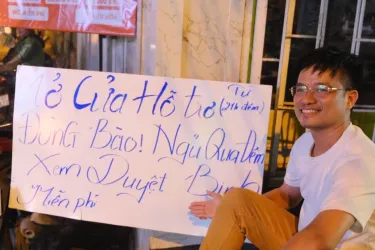 Mở Cửa Hỗ trợ Từ (21h đêm)
Đồng Bào! Ngủ Qua Đêm
Xem Duyệt Binh
Miễn phí